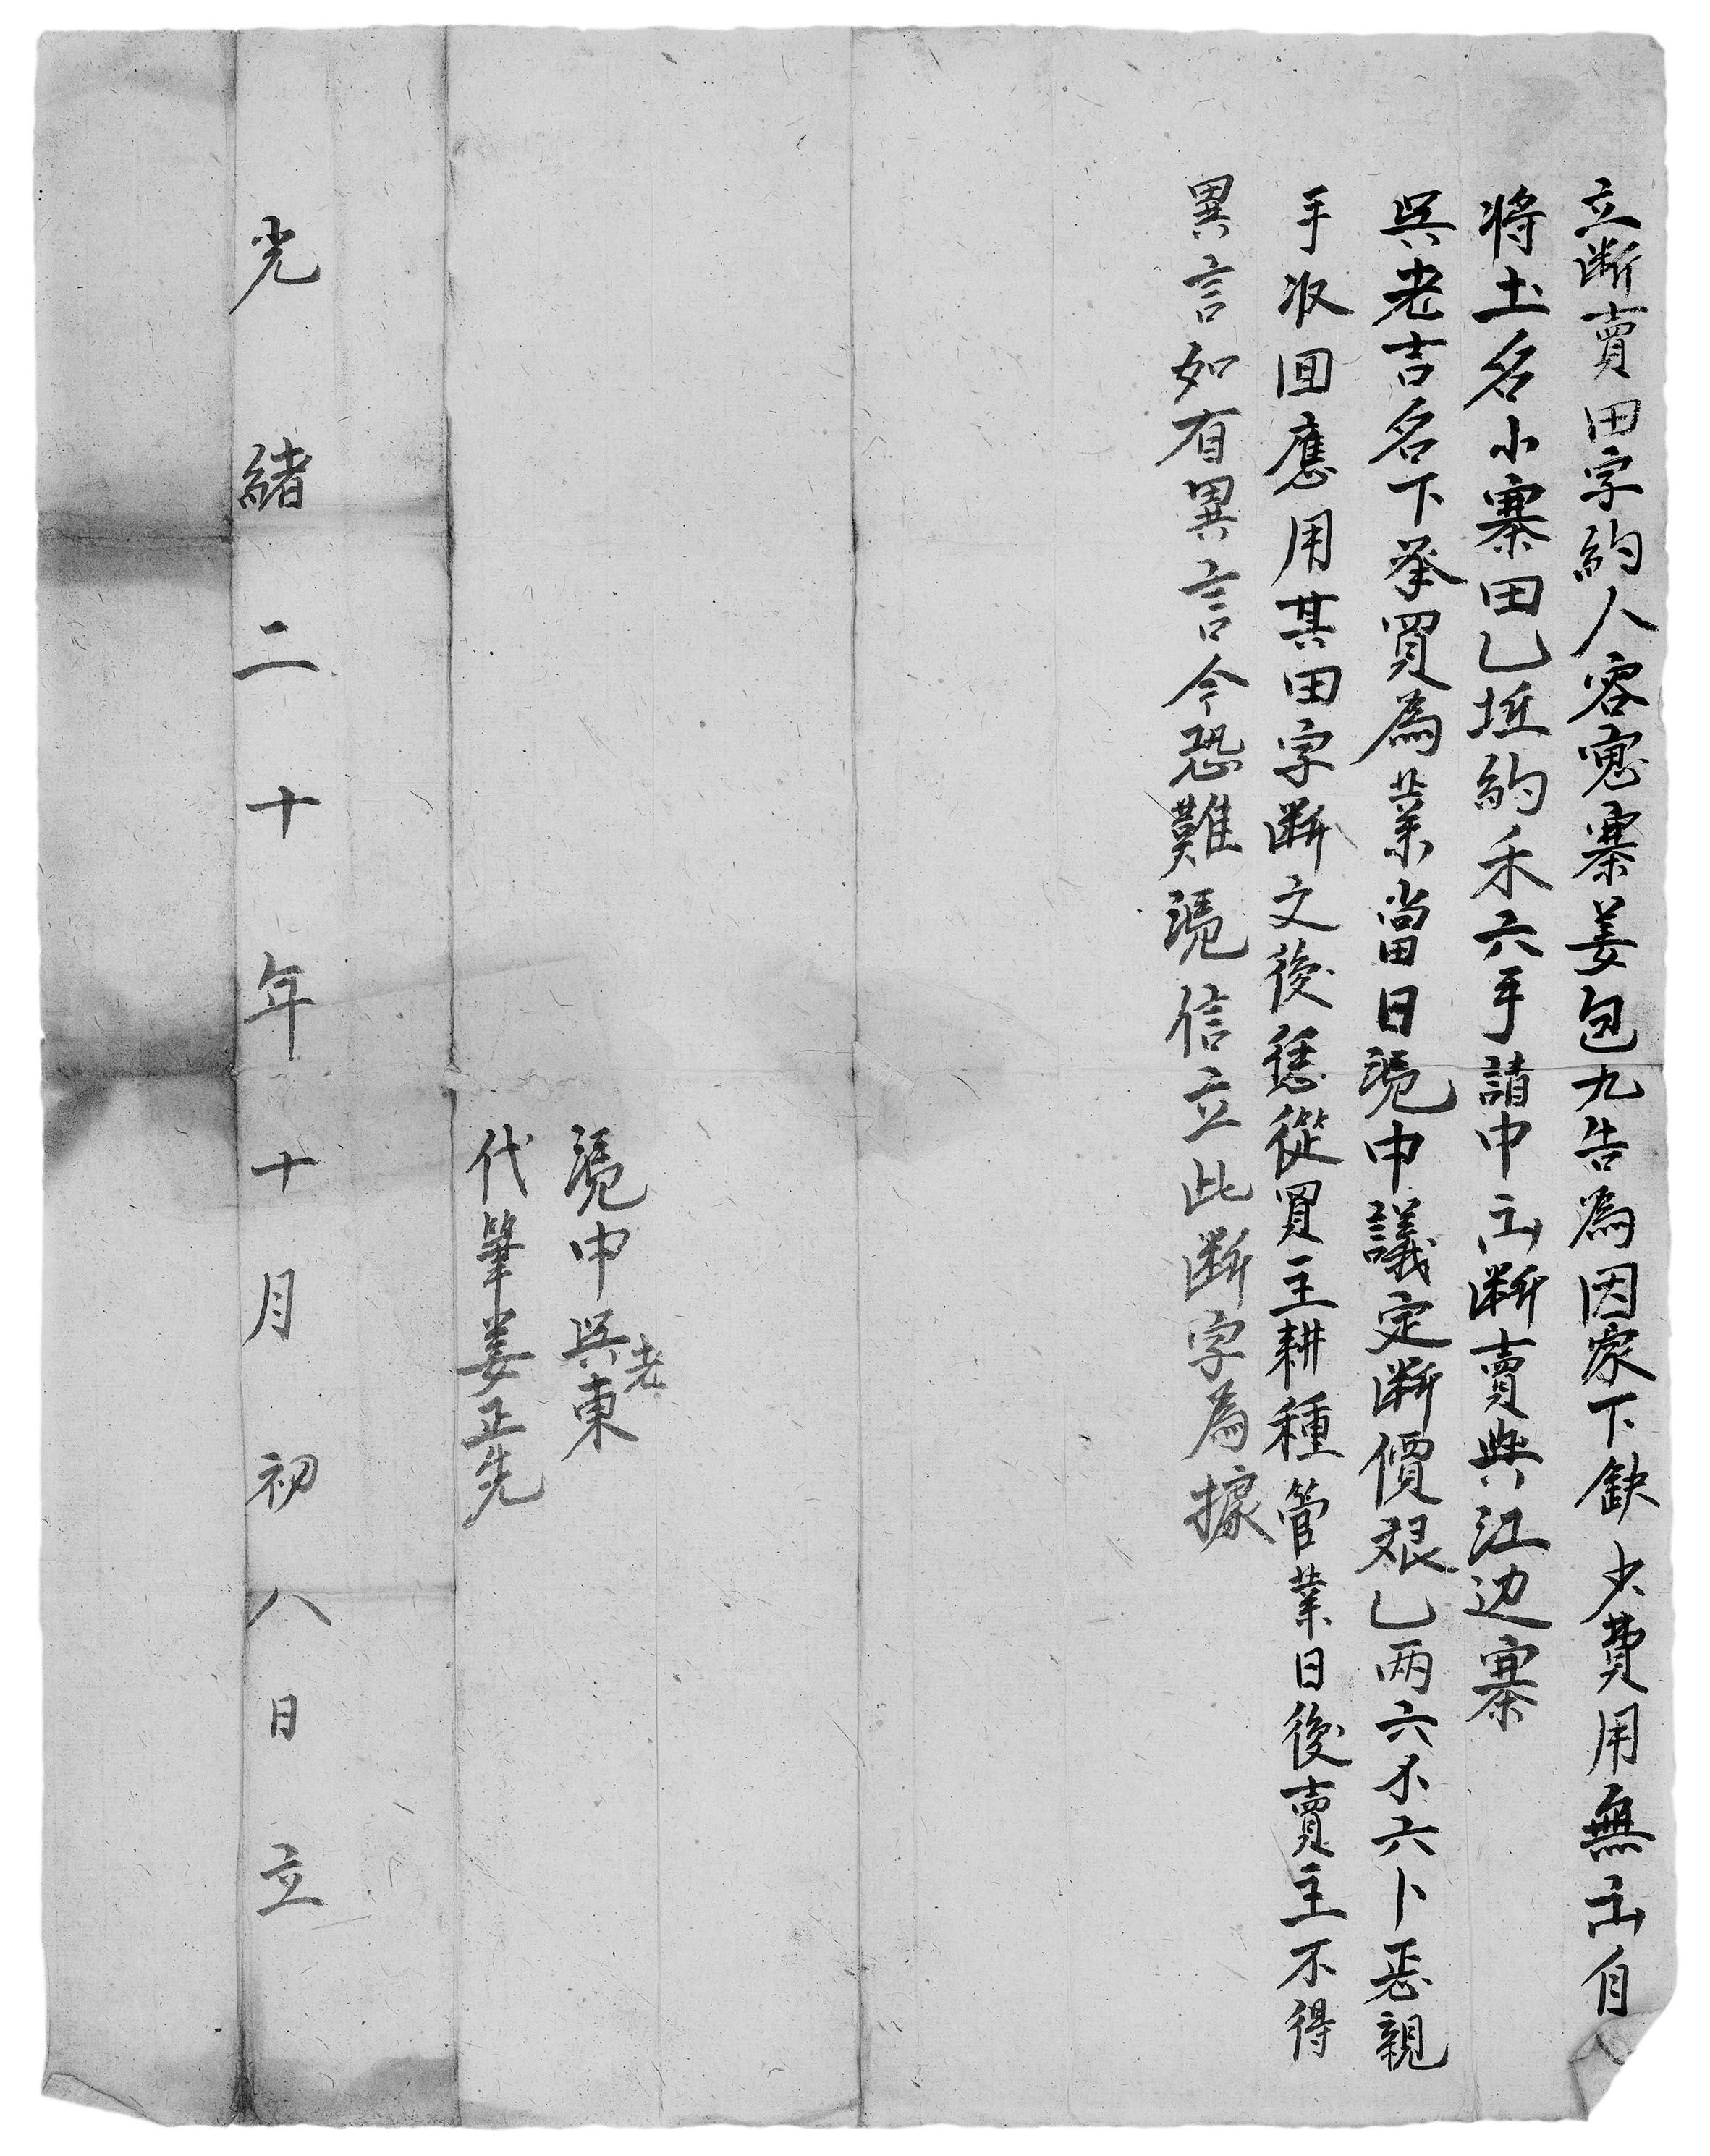 立断賣田字約人容寬寨姜包九告為因家下缺少費用無出自
将土名小寨田乙坵約禾六手請中出断賣與江边寨
吴老吉名下承買為業當日凴中議定断價艮乙两六禾六卜恁親
手收回應用其田字断文後恁從買主耕種管業日後賣主不得
異言如有異言今恐難凴信立此断字為據
凴中吴老東
代筆姜正先
光緒二十年十月初八日立